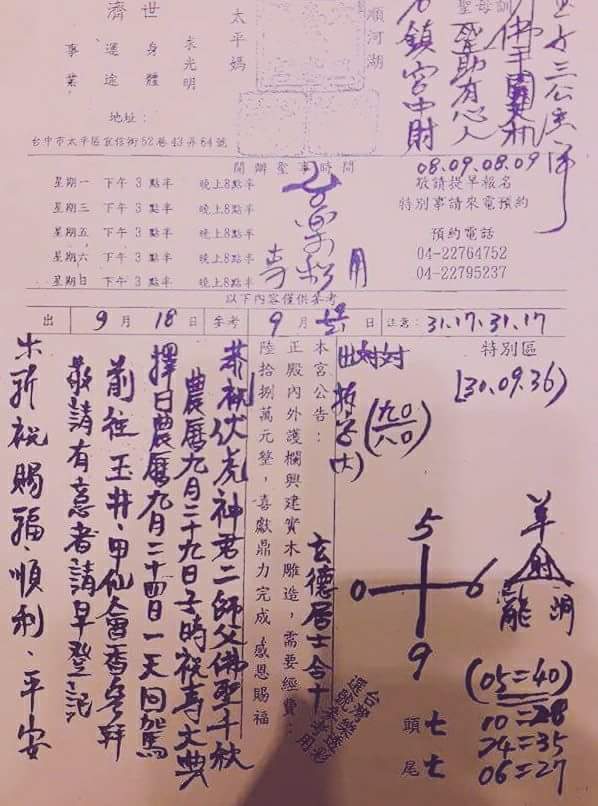 濟世
事業
運途
身體
求光明
太平媽
順河湖
聖母訓
聖助有心人
鎮宮中財
地址：
台中市太平區宜信街52巷43弄64號
開辦聖事時間
08.09.08.09
星期一 下午3點半 晚上8點半
敬請提早報名
星期三 下午3點半 晚上8點半
特別事請來電預約
星期五 下午3點半 晚上8點半
預約電話
星期六 下午3點半 晚上8點半
04-22764752
星期日 下午3點半 晚上8點半
04-22795237
用
以下內容僅供參考
出 9月18日 參考 9月 日 注意：31.17.31.17
特別區
(30.09.36)
(九0/八0)
(大)
5
0 6
9
頭 七
尾 七
羊
龍
(05=40)
10=28
24=35
06=27
本宮公告：
正殿內外護欄興建實木雕造，需要經費：
陸拾捌萬元整，喜獻鼎力完成 感恩賜福
玄德居士合十
台灣樂透彩
選號參考用
恭祝伏虎神君二師父佛聖千秋
農曆九月二十九日子時祝壽大典
擇日農曆九月二十四日一天回駕
前往玉井、甲仙會香參拜
敬請有意者請早登記
祈祝賜福、順利、平安